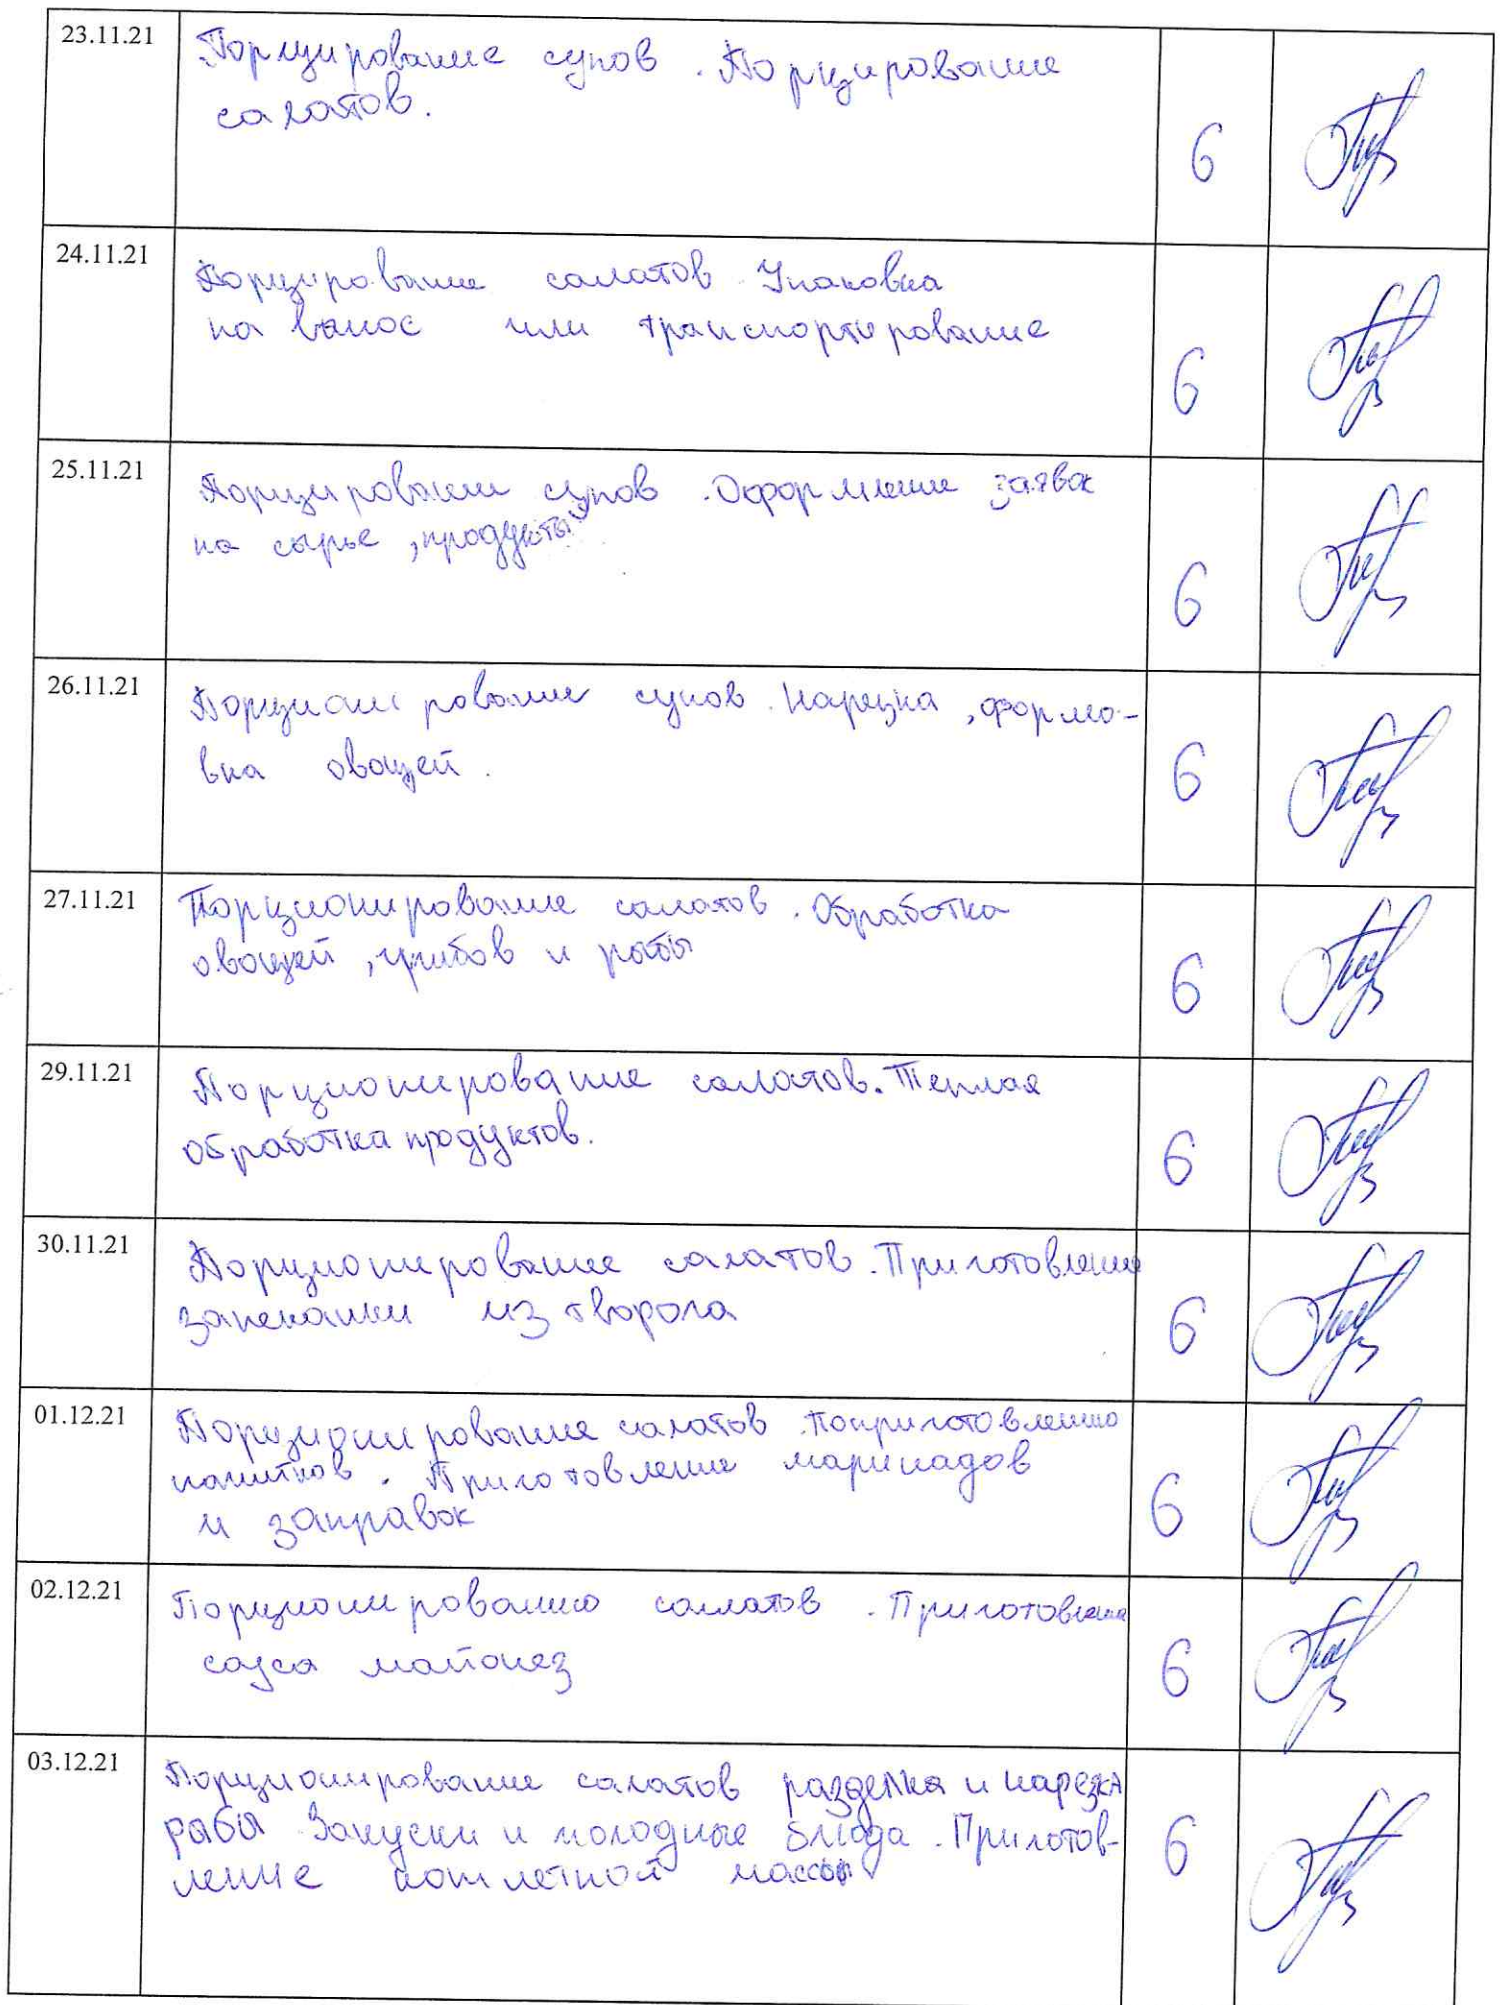 23.11.21
Порцирование супов. Порцирование
салатов.
6
24.11.21
Порцирование салатов Упаковка
на вынос или транспортирование
6
25.11.21
Порцировании супов. Оформление заявок
на сырье, продукты
6
26.11.21
Порционирование супов. Нарезка, формо-
вка овощей.
6
27.11.21
Порционирование салатов. Обработка
овощей, грибов и рыбы
6
29.11.21
Порционирование салатов. Теплая
обработка продуктов.
6
30.11.21
Порционирование салатов. Приготовление
запеканки из творога
6
01.12.21
Порционирование салатов. Поприготовлению
напитков. Приготовление маринадов
и заправок
6
02.12.21
Порционированию салатов. Приготовление
соуса майонез
6
03.12.21
Порционирование салатов разделка и нарезка
рабы Закуски и холодные блюда. Приготов-
ление котлетной массы
6